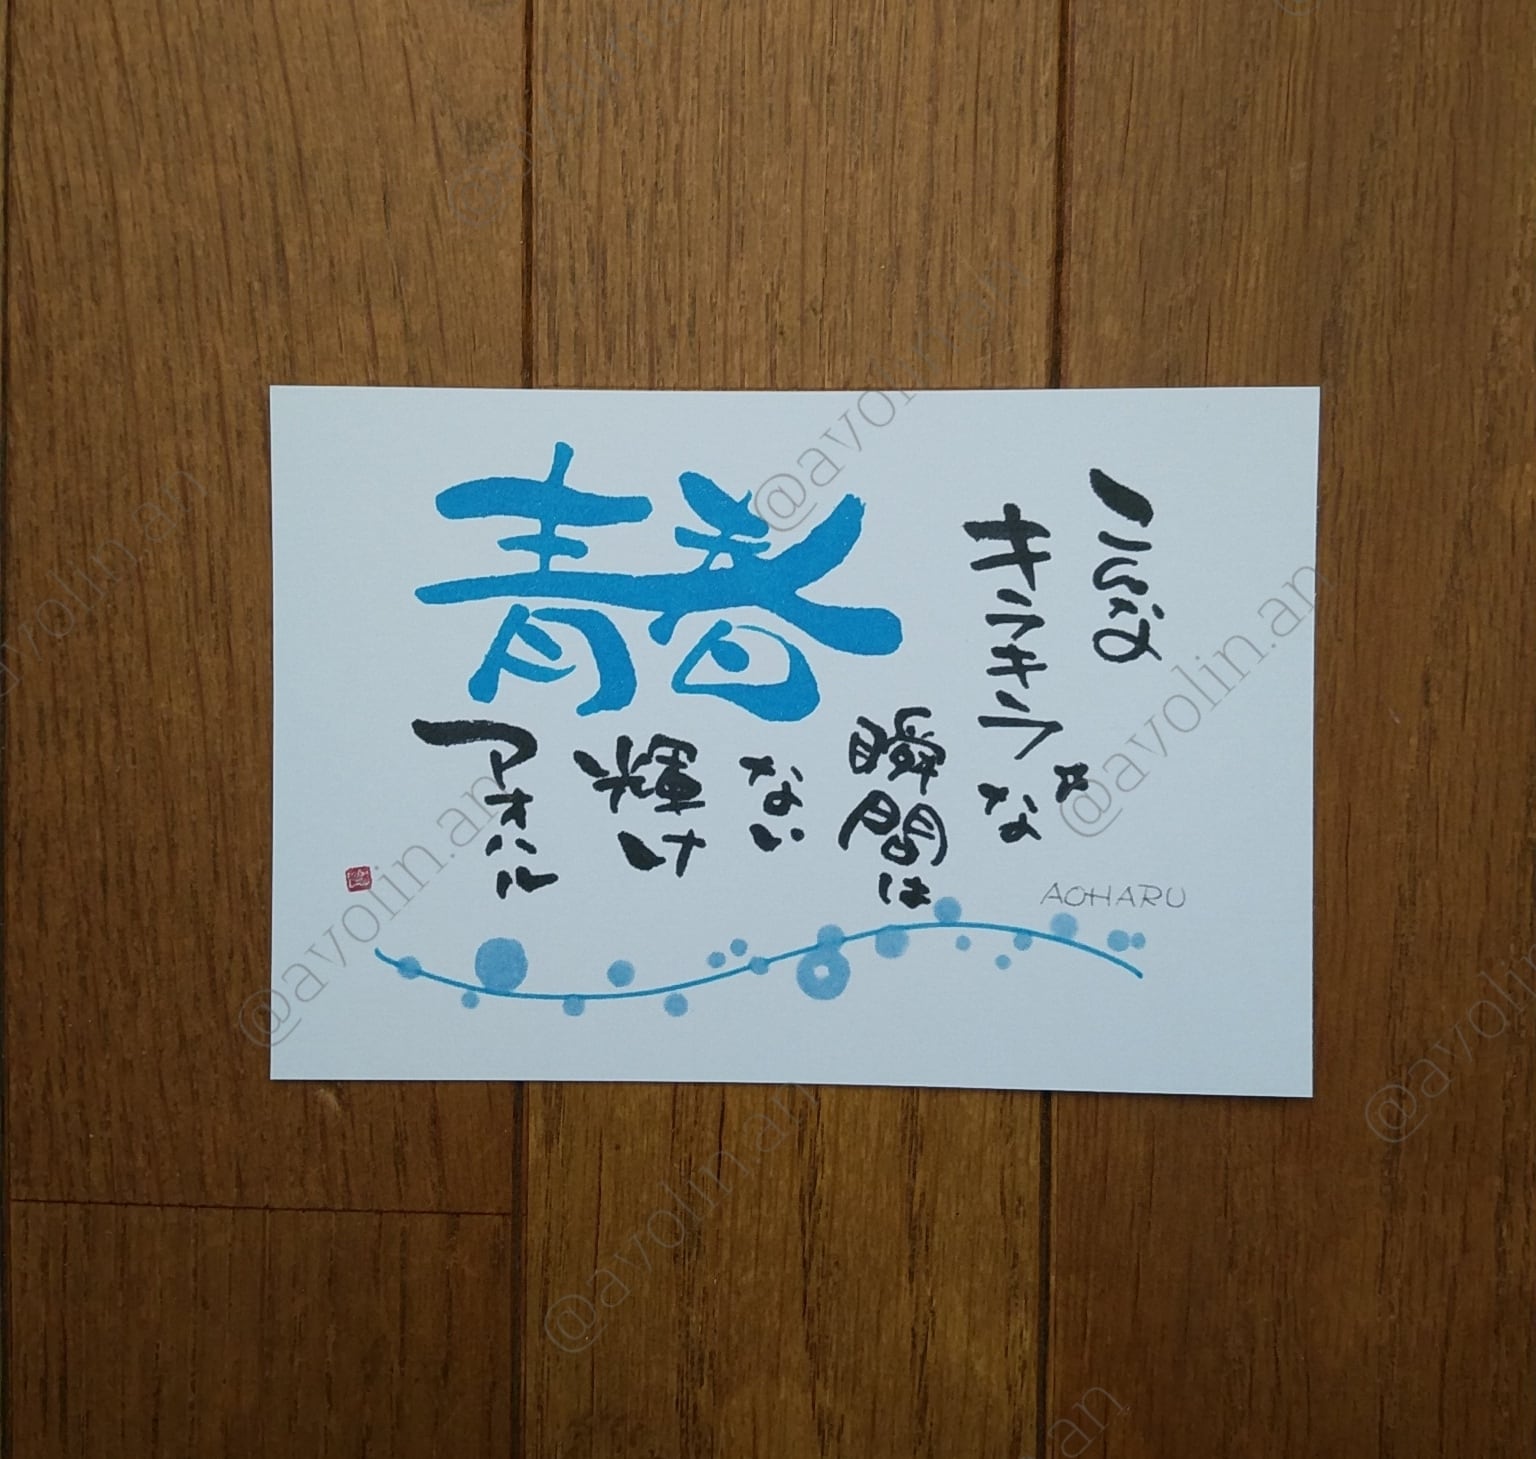 青春
こんな
キラキラな
瞬間は
ない
輝け
アオハル
AOHARU
@avolin.an
@avolin.an
@avolin.an
@avolin.an
@avolin.an